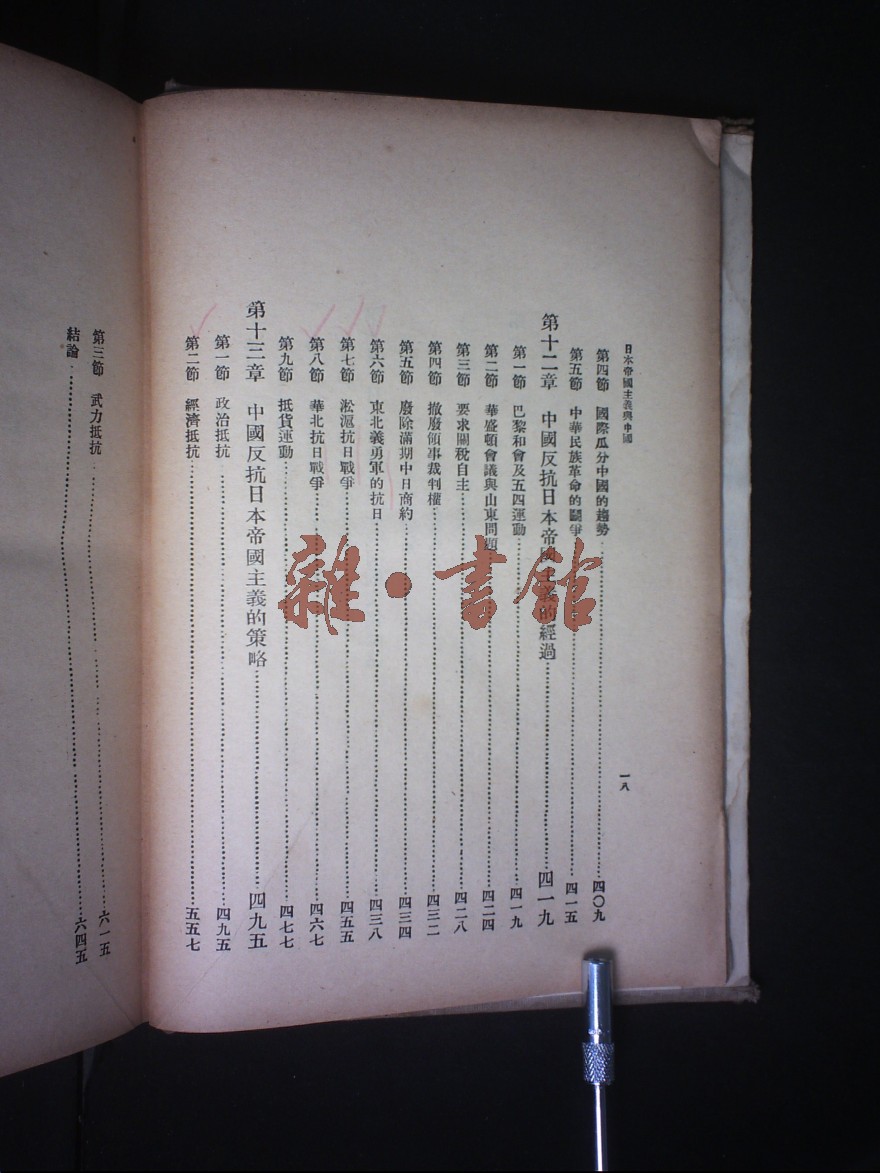 日本帝國主義與中國
一八
第四節 國際瓜分中國的趨勢 四〇九
第五節 中華民族革命的鬬爭 四一五
第十二章 中國反抗日本帝國主義的經過 四一九
第一節 巴黎和會及五四運動 四一九
第二節 華盛頓會議與山東問題 四二四
第三節 要求關稅自主 四二八
第四節 撤廢領事裁判權 四三二
第五節 廢除滿期中日商約 四三四
第六節 東北義勇軍的抗日 四三八
第七節 淞滬抗日戰爭 四五五
第八節 華北抗日戰爭 四六七
第九節 抵貨運動 四七七
第十三章 中國反抗日本帝國主義的策略 四九五
第一節 政治抵抗 四九五
第二節 經濟抵抗 五五七
第三節 武力抵抗 六一五
結論 六四五
雜·書館